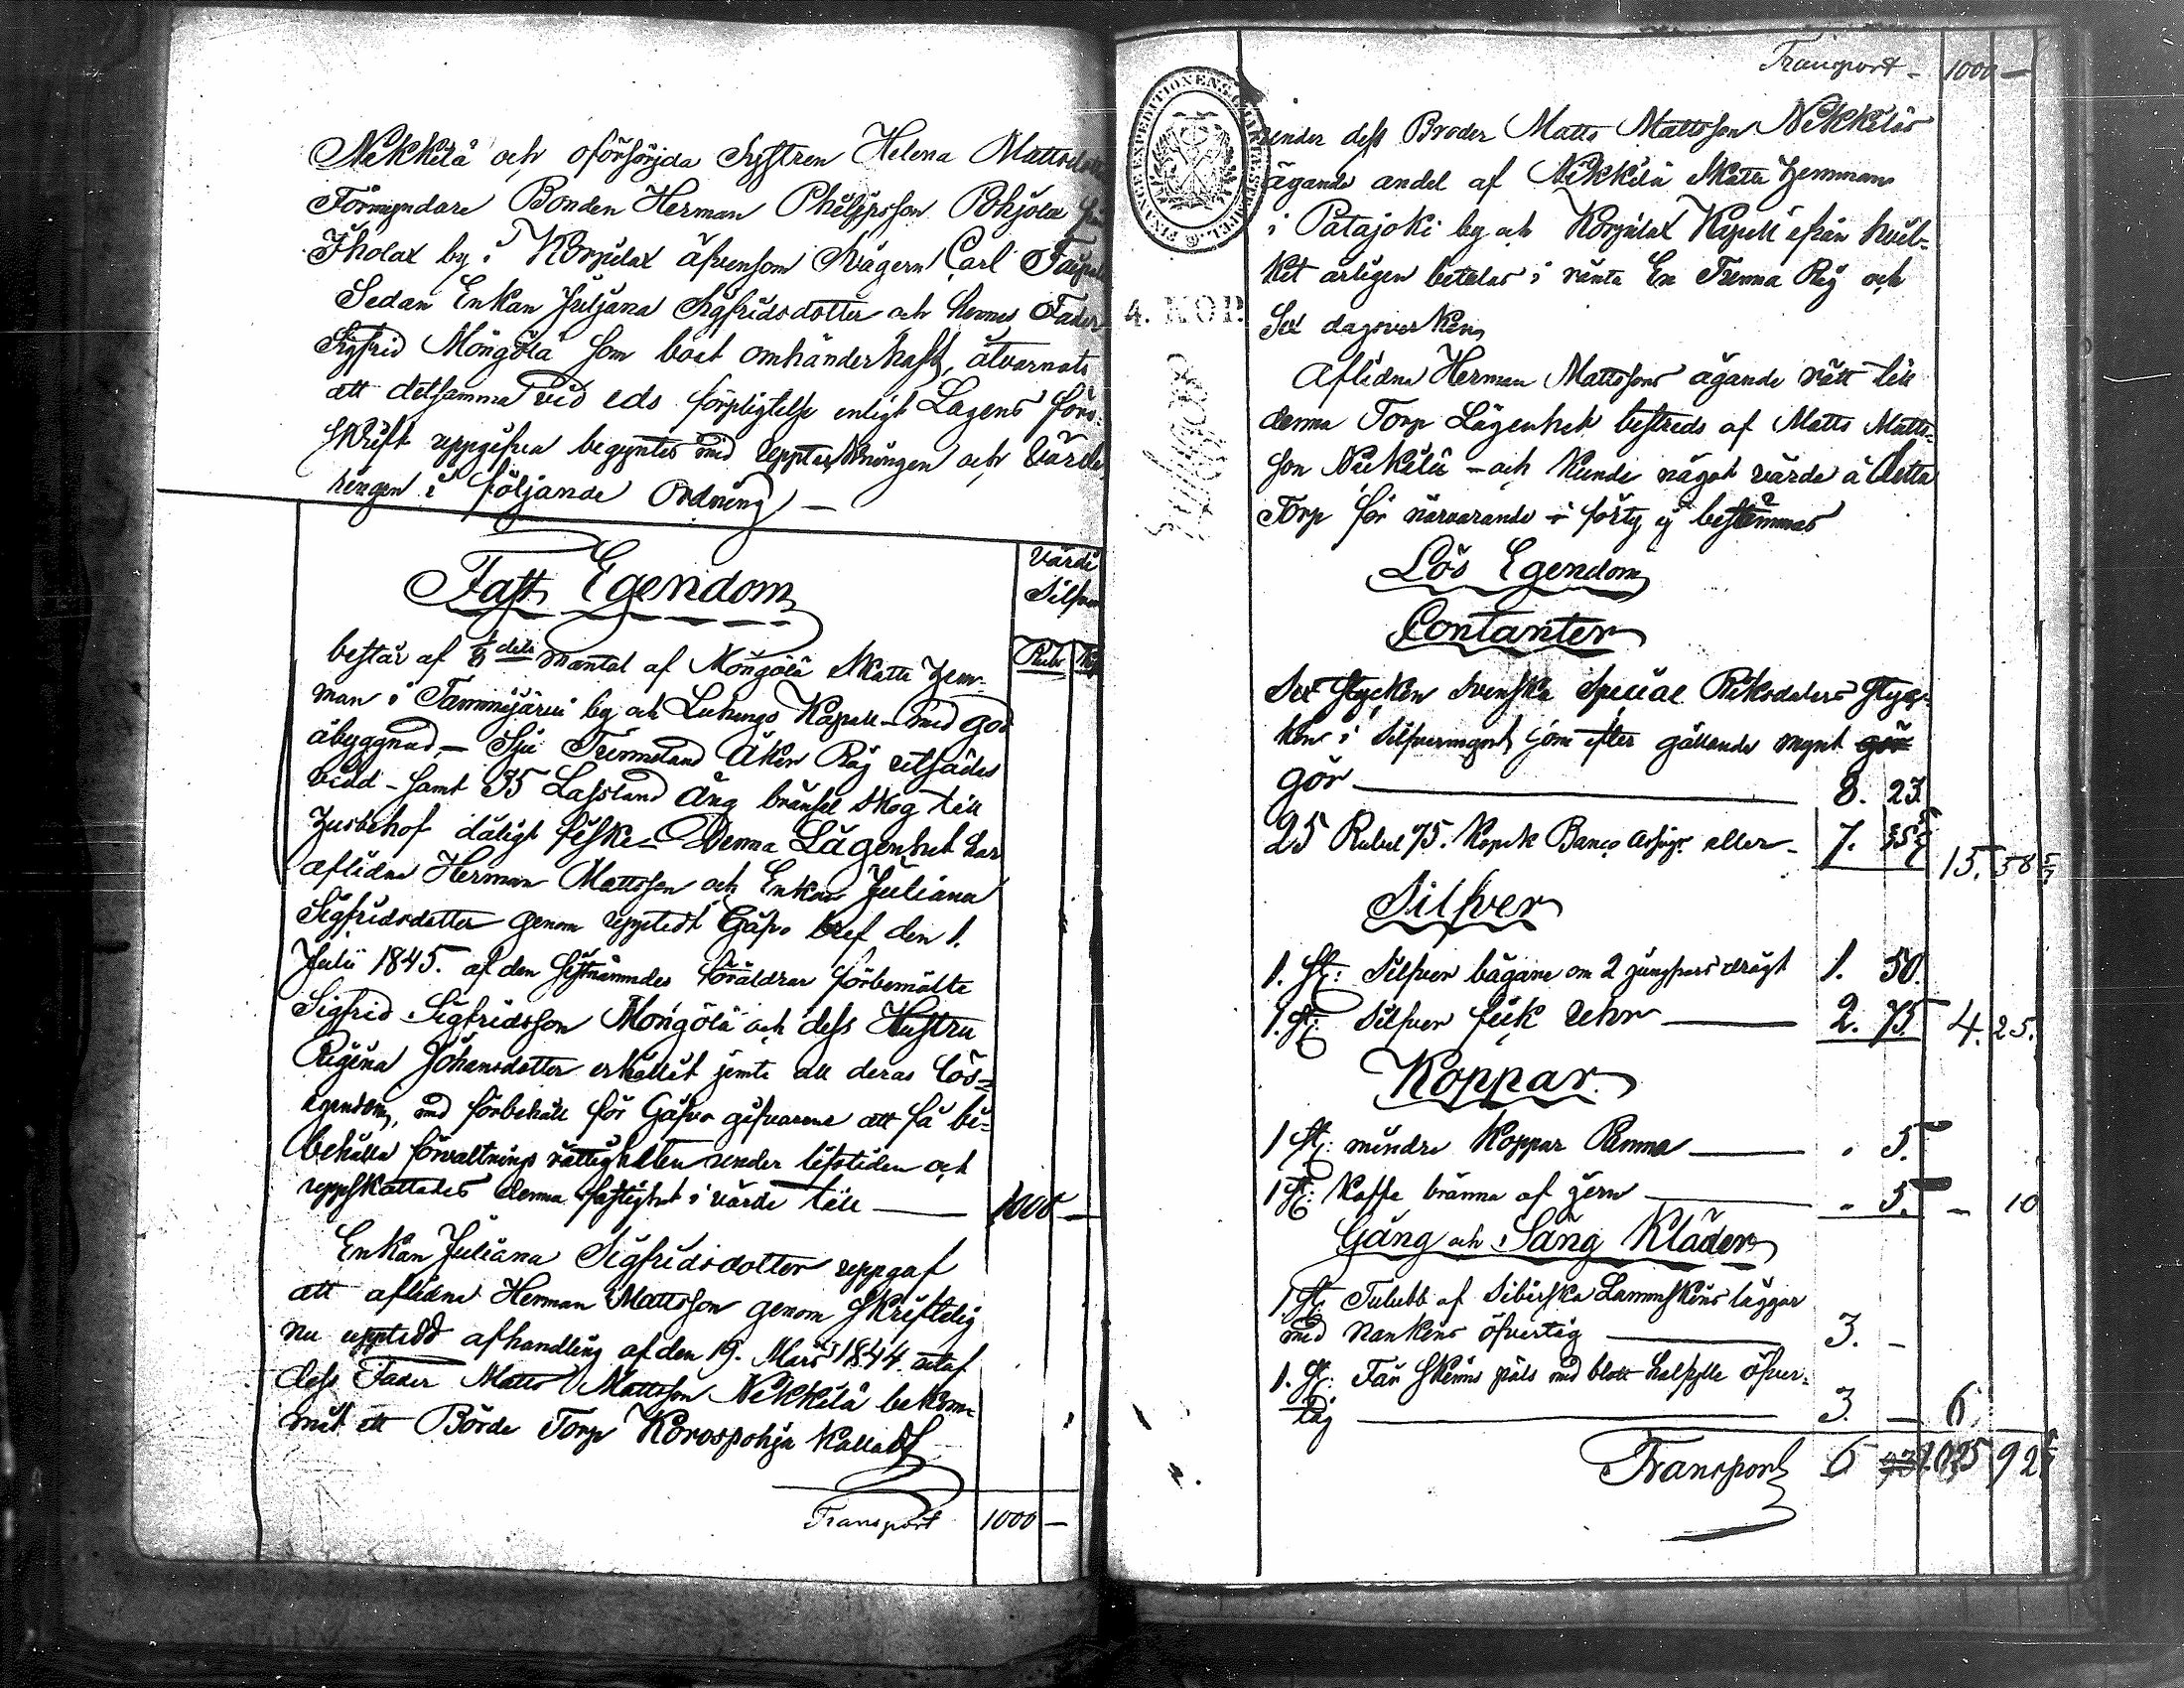 Nikkilä och oförsörjda Systren Helena Mattsdotters
Förmyndare Bonden Herman Philipsson Pohjola från
Iholax by i Korpilax äfvensom Svågern Carl
Sedan Enkan Juljana Sigfridsdotter och hennes Fader
Sigfrid Möngölä som boet omhänderhaft, åtvarnats
att detsamma vid eds förpligtelse enligt Lagens före-
skrift uppgifva begyntes med uppteckningen och värde
ringen i följande Ordning —
Värde
Silfver
Fast Egendom
Rub. Kop
består af 1/8 dels mantal af Möngölä Skatte hem-
man i Tammijärvi by och Luhango Kapell - med god
åbyggnad, - Sju Tunneland Åker Råg utsädes
vidd - samt 35 Lassland Äng bränsel skog till
husbehof dåligt fiske - Denna Lägenhet har
aflidne Herman Mattsson och Enkan Juliana
Sigfridsdotter genom upptedt Gåfvo bref den 1.
Julii 1845. af den sistnämndes föräldrar förbemälte
Sigfrid Sigfridsson Möngölä och dess Hustru
Regina Johansdotter erhållit jemte all deras lös-
egendom, med förbehåll för Gåfvo gifvarene att få bi-
behålla förvaltnings rättigheten under lifstiden och
uppskattades denna fastighet i värde till — 1000 —
Enkan Juliana Sigfridsdotter uppgaf
att aflidne Herman Mattsson genom skriftelig
nu uppted afhandling af den 19. Mars 1844 utaf
dess Fader Matts Mattsson Nikkilä bekom-
mit ett Börde Torp Korospohja kalladt
Transport 1000 —
Transport - 1000 —
4. KOP.
under dess Broder Matts Mattsson Nikkiläs
ägande andel af Nikkilä Skatte hemman
i Patajoki by och Korpilax Kapell ifrån hvil-
ket årligen betalas i ränta En Tunna Råg och
Sex dagsverken
Aflidne Herman Mattssons ägande rätt till
denna Torp Lägenhet bestreds af Matts Matts-
son Nikkilä - och kunde något värde å detta
Torp för närvarande i förty ej bestämmas
Lös Egendom
Contanter
Sex stycken Svenska Special Riksdalers styc-
ken i Silfvermynt som efter gällande mynt gör
gör — 8. 23.
25 Rubel 75. Kopek Banco Assign. eller - 7. 35 5/7 15. 58 5/7
Silfver
1. st: Silfver bägare om 2 jungfrurs drägt 1. 50.
1. st: Silfver fick Uhr — 2. 75. 4. 25.
Koppar
1 st: mindre Koppar Panna — . 5.
1 st: Kaffe bränna af jern — - 5. - 10
Gång och Säng Kläder
1 st. Tulubb af Sibirska Lammskins läggar
med Nankins öfvertÿg — 3. -
1. st: Får skinns päls med blott halfylle öfver-
tyg — 3. — 6.
Transport 6 1.025 92 5/7